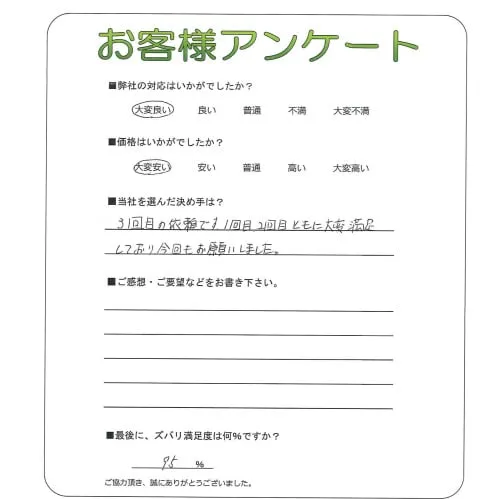 お客様アンケート
■弊社の対応はいかがでしたか？
大変良い 良い 普通 不満 大変不満
■価格はいかがでしたか？
大変安い 安い 普通 高い 大変高い
■当社を選んだ決め手は？
3回目の依頼です1回目,2回目ともに大変満足
しており今回もお願いしました。
■ご感想・ご要望などをお書き下さい。
■最後に、ズバリ満足度は何％ですか？
95 ％
ご協力頂き、誠にありがとうございました。